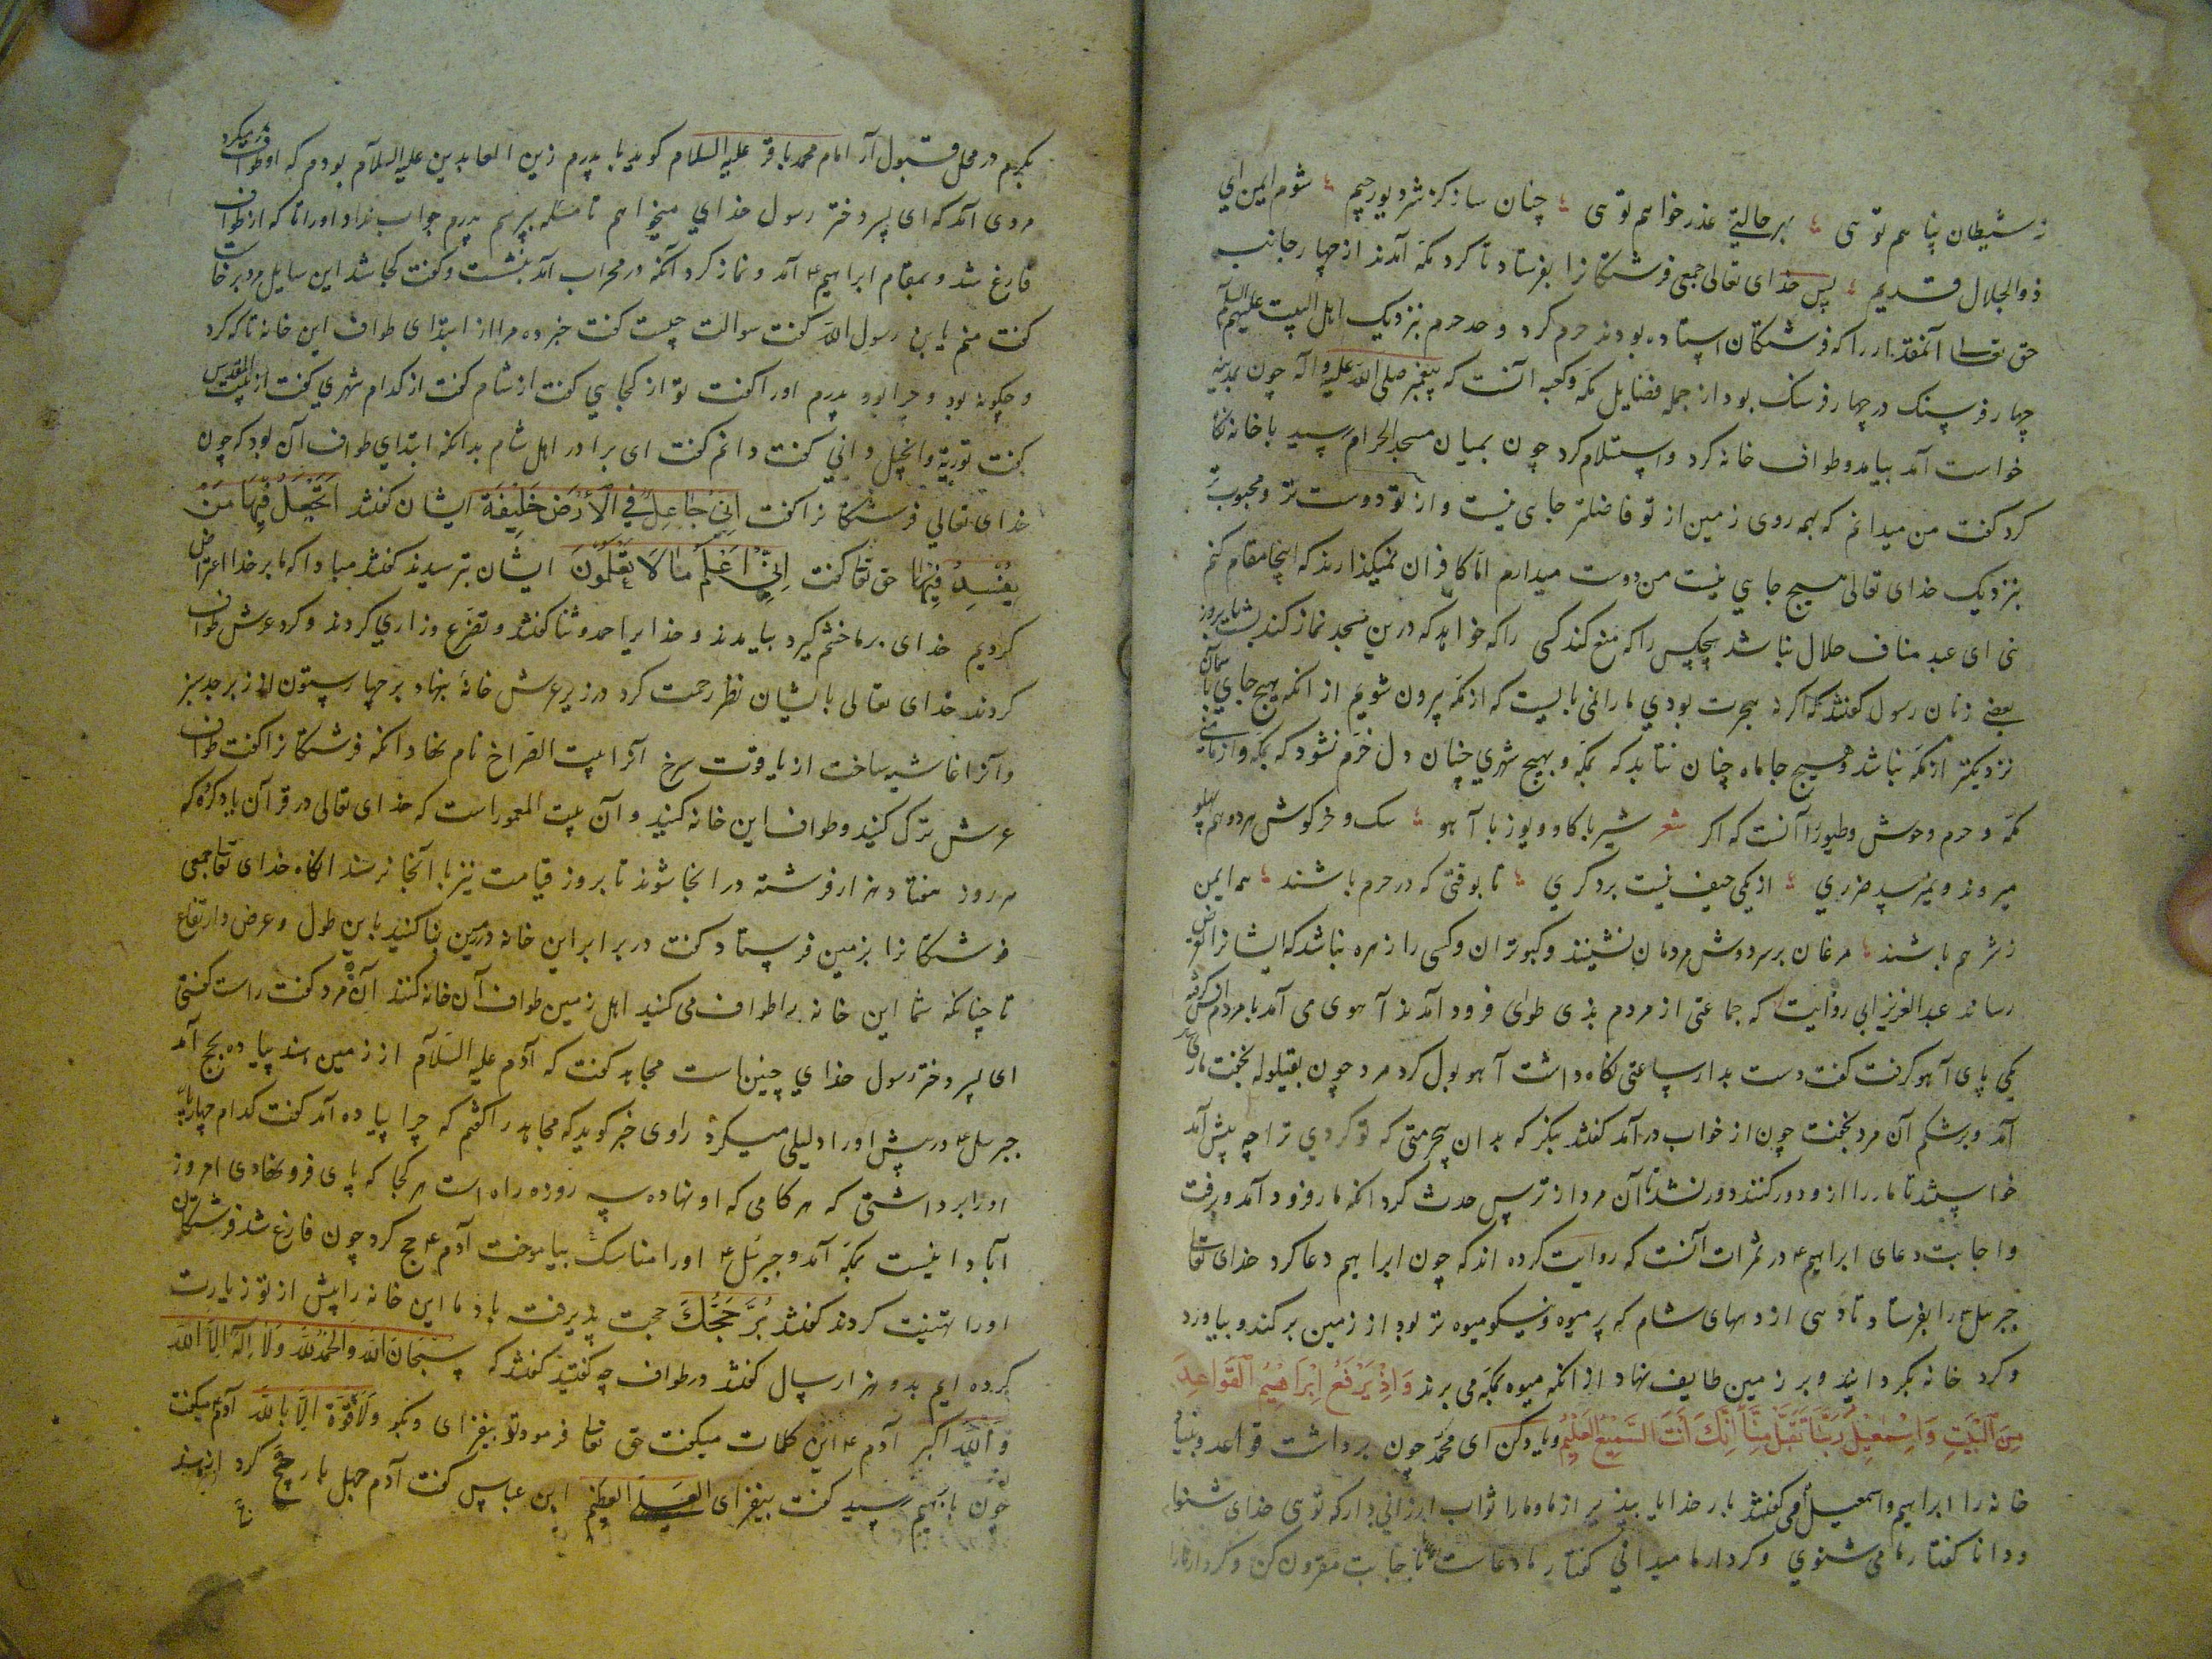 ز شیطان پناهم توئی ؛ بهر حالتی عذر خواهم توئی ؛ چنان ساز کز شر دیو رجیم ؛ شوم ایمن ای
ذوالجلال قدیم ؛ پس خدای تعالی جمعی فرشتکانرا بفرستاد تا کرد مکه آمدند از چهار جانب
حق تعالی آنمقدار را که فرشتکان استاده بودند حرم کرد و حد حرم بنزدیک اهل البیت علیهم السلام
چهار فرسنک در چهار فرسنک بود از جمله فضایل مکه و کعبه آنست که پیغمبر صلی الله علیه و اله چون بمدینه
خواست آمد بیامد و طواف خانه کرد و استلام کرد چون بمیان مسجد الحرام رسید با خانه نکاه
کرد کفت من میدانم که بهمه روی زمین از تو فاضلتر جای نیست و از تو دوست تر و محبوب تر
بنزدیک خدای تعالی هیچ جایی نیست من دوست میدارم اما کافران نمیکذارند که اینجا مقام کنم
نی ای عبد مناف حلال نباشد هیچکس را که منع کند کسی را که خواهد که درین مسجد نماز کند بشب یا بروز
بعضی زنان رسول کفتند که اکر نه هجرت بودی ما را نمی بایست که از مکه بیرون شویم از انکه بهیچ جای آسمان
نزدیکتر از مکه نباشد و هیچ جا ماه چنان نتابد که بمکه و بهیچ شهری چنان دل خرم نشود که بمکه و از
مکه و حرم وحوش و طیور را آنست که اکر شعر شیر با کاو و یوز با آهو ؛ سک و خرکوش هر دو هم پهلو
میروند و نمیرسد ضرری ؛ از یکی حیف نیست بر دکری ؛ تا بوقتی که در حرم باشند ؛ همه ایمن
ز شر هم باشند ؛ مرغان بر سر دوش مردمان نشینند و کبوتران و کسی را زهره نباشد که ایشانرا تعرض
رساند عبد العزیز ابی روایت که جماعتی از مردم بذی طوی فرود آمدند آهوی می آمد با مردم انس کرفته
یکی پای آهو کرفت کفت دست بدار ساعتی نکاه داشت آهو بول کرد مرد چون بقیلوله بخفت ماری
آمد و بر شکم آن مرد بخفت چون از خواب در آمد کفتند بنکر که بدان بیحرمتی که تو کردی ترا چه پیش آمد
خواستند تا مار را از و دور کنند دور نشد تا آن مرد از ترس حدث کرد انکه مار فرود آمد و برفت
و اجابت دعای ابراهیم ع در ثمرات آنست که روایت کرده اند که چون ابراهیم دعا کرد خدای تعالی
جبرئیل ع را بفرستاد تا دهی از دههای شام که پر میوه و نیکو میوه تر بود از زمین بر کند و بیاورد
و کرد خانه بکردانید و بر زمین طایف نهاد از انکه میوه بمکه می برند وَاِذْ یَرْفَعُ اِبْرَاهِیمُ الْقَوَاعِدَ
مِنَ الْبَیْتِ وَاِسْمٰعِیلُ رَبَّنَا تَقَبَّلْ مِنَّا اِنَّکَ اَنْتَ السَّمِیعُ الْعَلِیمُ و یاد کن ای محمد چون برداشت قواعد و بنیاد
خانه را ابراهیم و اسمعیل می کفتند بار خدایا بپذیر از ما و ما را ثواب ارزانی دار که توئی خدای شنوا
و دانا کفتار ما می شنوی و کردار ما میدانی کفتار ما دعاست با جابت مقرون کن و کردار ما را
بکرم در محل قبول آر امام محمد باقر علیه السلام کوید با پدرم زین العابدین علیه السلام بودم که او طواف میکرد
مردی آمد که ای پسر دختر رسول خدای میخواهم تا مسئله بپرسم پدرم جواب نداد او را تا که از طواف
فارغ شد و بمقام ابراهیم ع آمد و نماز کرد آنکه در محراب آمد بنشست و کفت کجا شد این سایل مرد برخاست
کفت منم یا بن رسول الله کفت سوالت چیست کفت خبر ده مرا از ابتدای طواف این خانه تا که کرد
و چکونه بود و چرا بود پدرم او را کفت تو از کجایی کفت از شام کفت از کدام شهری کفت از بیت المقدس
کفت توریة و انجیل دانی کفت دانم کفت ای برادر اهل شام بدانکه ابتدای طواف آن بود که چون
خدای تعالی فرشتکانرا کفت اِنّی جَاعِلٌ فِی الْاَرْضِ خَلِیفَة ایشان کفتند اَتَجْعَلُ فِیهَا مَنْ
یُفْسِدُ فِیهَا حق تعالی کفت اِنّی اَعْلَمُ مَا لَا تَعْلَمُونَ ایشان بترسیدند کفتند مبادا که ما بر خدا اعتراض
کردیم خدای بر ما خشم کیرد بیامدند و خدایرا حمد و ثنا کفتند و تضرع و زاری کردند و کرد عرش طواف
کردند خدای تعالی بایشان نظر رحمت کرد در زیر عرش خانه بنهاد بر چهار ستون از زبرجد سبز
و آنرا غاشیه ساخت از یاقوت سرخ آنرا بیت الضراخ نام نهاد انکه فرشتکانرا کفت طواف
عرش ترک کنید و طواف این خانه کنید و آن بیت المعمور است که خدای تعالی در قرآن یاد کرد که
هر روز هفتاد هزار فرشته در انجا شوند تا بروز قیامت نیز با آنجا نرسند انکاه خدای تعالی جمعی
فرشتکانرا بزمین فرستاد کفت در برابر این خانه در زمین بنا کنید باین طول و عرض و ارتفاع
تا چنانکه شما این خانه را طواف می کنید اهل زمین طواف آن خانه کنند آن مرد کفت راست کفتی
ای پسر دختر رسول خدای چنین است مجاهد کفت که آدم علیه السلام از زمین هند پیاده بحج آمد
جبرئیل ع در پیش او را دلیلی میکرد راوی خبر کوید که مجاهد را کفتم که چرا پیاده آمد کفت کدام چهارپا
او را برداشتی که هر کامی که او نهاده سه روزه راه است هر کجا که پای فرو نهادی امروز
آبادانیست بمکه آمد و جبرئیل ع او را مناسک بیاموخت آدم ع حج کرد چون فارغ شد فرشتکان
او را تهنیت کردند کفتند بُرَّ حَجُّکَ حجت پذیرفته باد ما این خانه را پیش از تو زیارت
کرده ایم بدو هزار سال کفتند در طواف چه کفتید کفتند که سُبْحَانَ اللهِ وَالْحَمْدُ لِلّهِ وَلَا اِلٰهَ اِلَّا اللهُ
وَاللهُ اکبر آدم ع این کلمات میکفت حق تعالی فرمود تو بیفزای و بکو وَلَا قُوَّةَ اِلَّا بِاللهِ آدم میکفت
چون با ابراهیم رسید کفت بیفزای العلی العظیم ابن عباس کفت آدم چهل بار حج کرد از هند